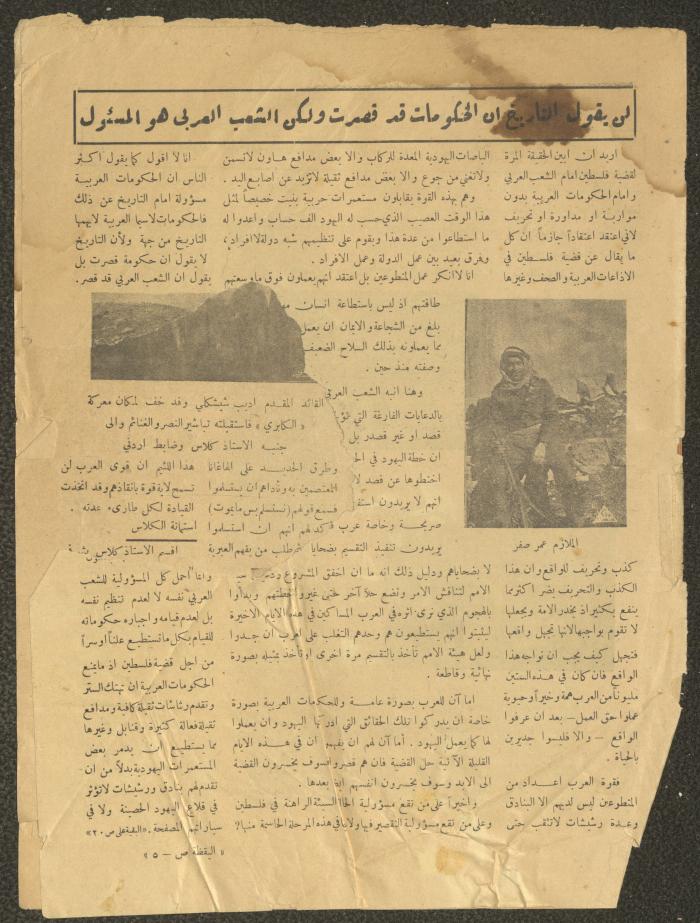 لن يقول التاريخ ان الحكومات قد قصرت ولكن الشعب العربي هو المسئول
اريد ان ابين الحقيقة المرة
لقضية فلسطين امام الشعب العربي
وامام الحكومات العربية بدون
مواربة او مداورة او تحريف
لاني اعتقد اعتقاداً جازماً ان كل
ما يقال عن قضية فلسطين في
الاذاعات العربية والصحف وغيرها
الملازم عمر صفر
كذب وتحريف للواقع وان هذا
الكذب والتحريف يضر اكثر مما
ينفع بكثير اذ يخدر الامة ويجعلها
لا تقوم بواجبها لانها تجهل واقعها
فتجهل كيف يجب ان تواجه هذا
الواقع فان كان في هذه الستين
مليوناً من العرب همة وخيراً وحيوية
عملوا حق العمل — بعد ان عرفوا
الواقع — والا فليسوا جديرين
بالحياة .
فقوة العرب اعداد من
المتطوعين ليس لديهم الا البنادق
وعدة رشيشات لا تثقب حتى
الباصات اليهودية المعدة للركاب والا بعض مدافع هاون لا تسمن
ولا تغني من جوع والا بعض مدافع ثقيلة لا تزيد عن اصابع اليد .
وهم بهذه القوة يقابلون مستعمرات حربية بنيت خصيصاً لمثل
هذا الوقت العصيب الذي حسب له اليهود الف حساب واعدوا له
ما استطاعوا من عدة هذا ويقوم على تنظيمهم شبه دولة لا افراد ،
وفرق بعيد بين عمل الدولة وعمل الافراد .
انا لا انكر عمل المتطوعين بل اعتقد انهم يعملون فوق ما وسعتهم
طاقتهم اذ ليس باستطاعة انسان
بلغ من الشجاعة والايمان ان يعمل
مما يعملونه بذلك السلاح الضعيف
وصفته منذ حين .
وهنا انبه الشعب العربي
بالدعايات الفارغة التي
قصد او غير قصد بل
ان خطة اليهود في
اختطوها عن قصد
انهم لا يريدون
صريحة وخاصة عرب
يريدون تنفيذ التقسيم بضحايا
لا بضحاياهم ودليل ذلك انه ما ان اخفق المشروع
الامم لتناقش الامر وتضع حلا آخر حتى غيروا خطتهم وبدأوا
بالهجوم الذي نرى اثره في العرب المساكين في هذه الايام الاخيرة
ليثبتوا انهم يستطيعون هم وحدهم التغلب على العرب ان جدوا
ولعل هيئة الامم تأخذ بالتقسيم مرة اخرى او تأخذ بمثله بصورة
نهائية وقاطعة .
اما آن للعرب بصورة عامة وللحكومات العربية بصورة
خاصة ان يدركوا تلك الحقائق التي ادركها اليهود وان يعملوا
لها كما يعمل اليهود . أما آن لهم ان يفهموا ان في هذه الايام
القليلة الآتية حل القضية فان هم قصروا سوف يخسرون القضية
الى الابد وسوف يخسرون انفسهم ايضاً بعدها .
واخيراً على من تقع مسؤولية الحالة السيئة الراهنة في فلسطين
وعلى من تقع مسؤولية التقصير فيها ولا سيما في هذه المرحلة الحاسمة منها ؟
انا لا اقول كما يقول اكثر
الناس ان الحكومات العربية
مسؤولة امام التاريخ عن ذلك
فالحكومات لا سيما العربية لا يهمها
التاريخ من جهة ولأن التاريخ
لا يقول ان حكومة قصرت بل
يقول ان الشعب العربي قد قصر .
القائد المقدم اديب شيشكلي وقد خف لمكان معركة
« الكابري » فاستقبلته تباشير النصر والغنائم والى
جنبه الاستاذ كلاس وضابط اردني
وطرق الحديد على الهاغانا
المعتصمين به وناداهم ان يستسلموا
فسمع قولهم ( نستسلم بس مايموت )
فأكد لهم انهم ان استسلموا
من يفهم العبرية
هذا اللئيم ان قوى العرب لن
تسمح لاية قوة بانقاذهم وقد اتخذت
القيادة لكل طارىء عدته .
استماتة الكلاس
اقسم الاستاذ كلاس
وانما أحمل كل المسؤولية للشعب
العربي نفسه لا لعدم تنظيم نفسه
بل لعدم قيامه واجباره حكوماته
للقيام بكل ما تستطيع علناً او سراً
من اجل قضية فلسطين اذ ما يمنع
الحكومات العربية ان تهتك الستر
وتقدم رشاشات ثقيلة كافية ومدافع
ثقيلة فعالة كثيرة وقنابل وغيرها
مما يستطيع ان يدمر بعض
المستعمرات اليهودية بدلاً من ان
تقدم لهم بنادق ورشيشات لا تؤثر
في قلاع اليهود الحصينة ولا في
سياراتهم المصفحة . « البقية على ص ٢٠ »
« اليقظة ص – ٥ »